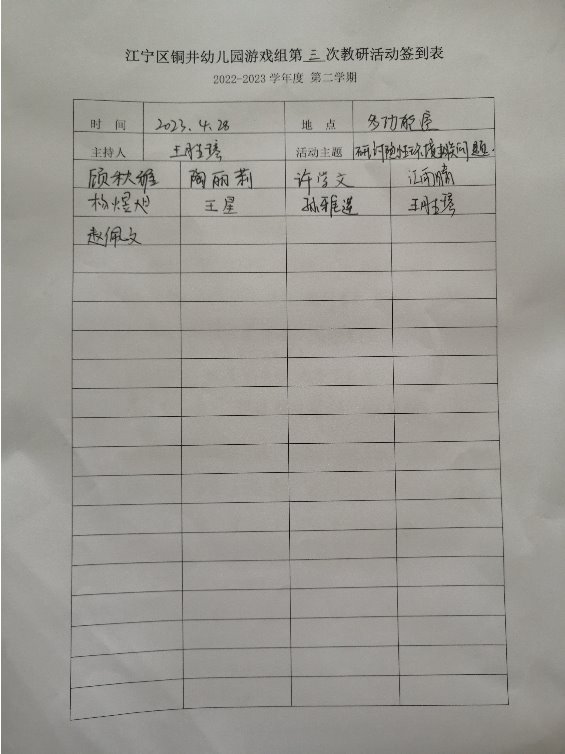 江宁区铜井幼儿园游戏组第 三 次教研活动签到表
2022-2023 学年度 第二学期
时 间 2023.4.28 地 点 多功能室
主持人 活动主题 研讨隐性环境 问题.
顾秋维 陶丽莉 许学文 江雨晴
杨煜旭 王星 孙雅莲
赵佩文